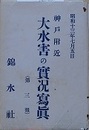 昭和十三年七月五日
神戸附近
大水害の實況寫眞
(第三輯)
錦水社